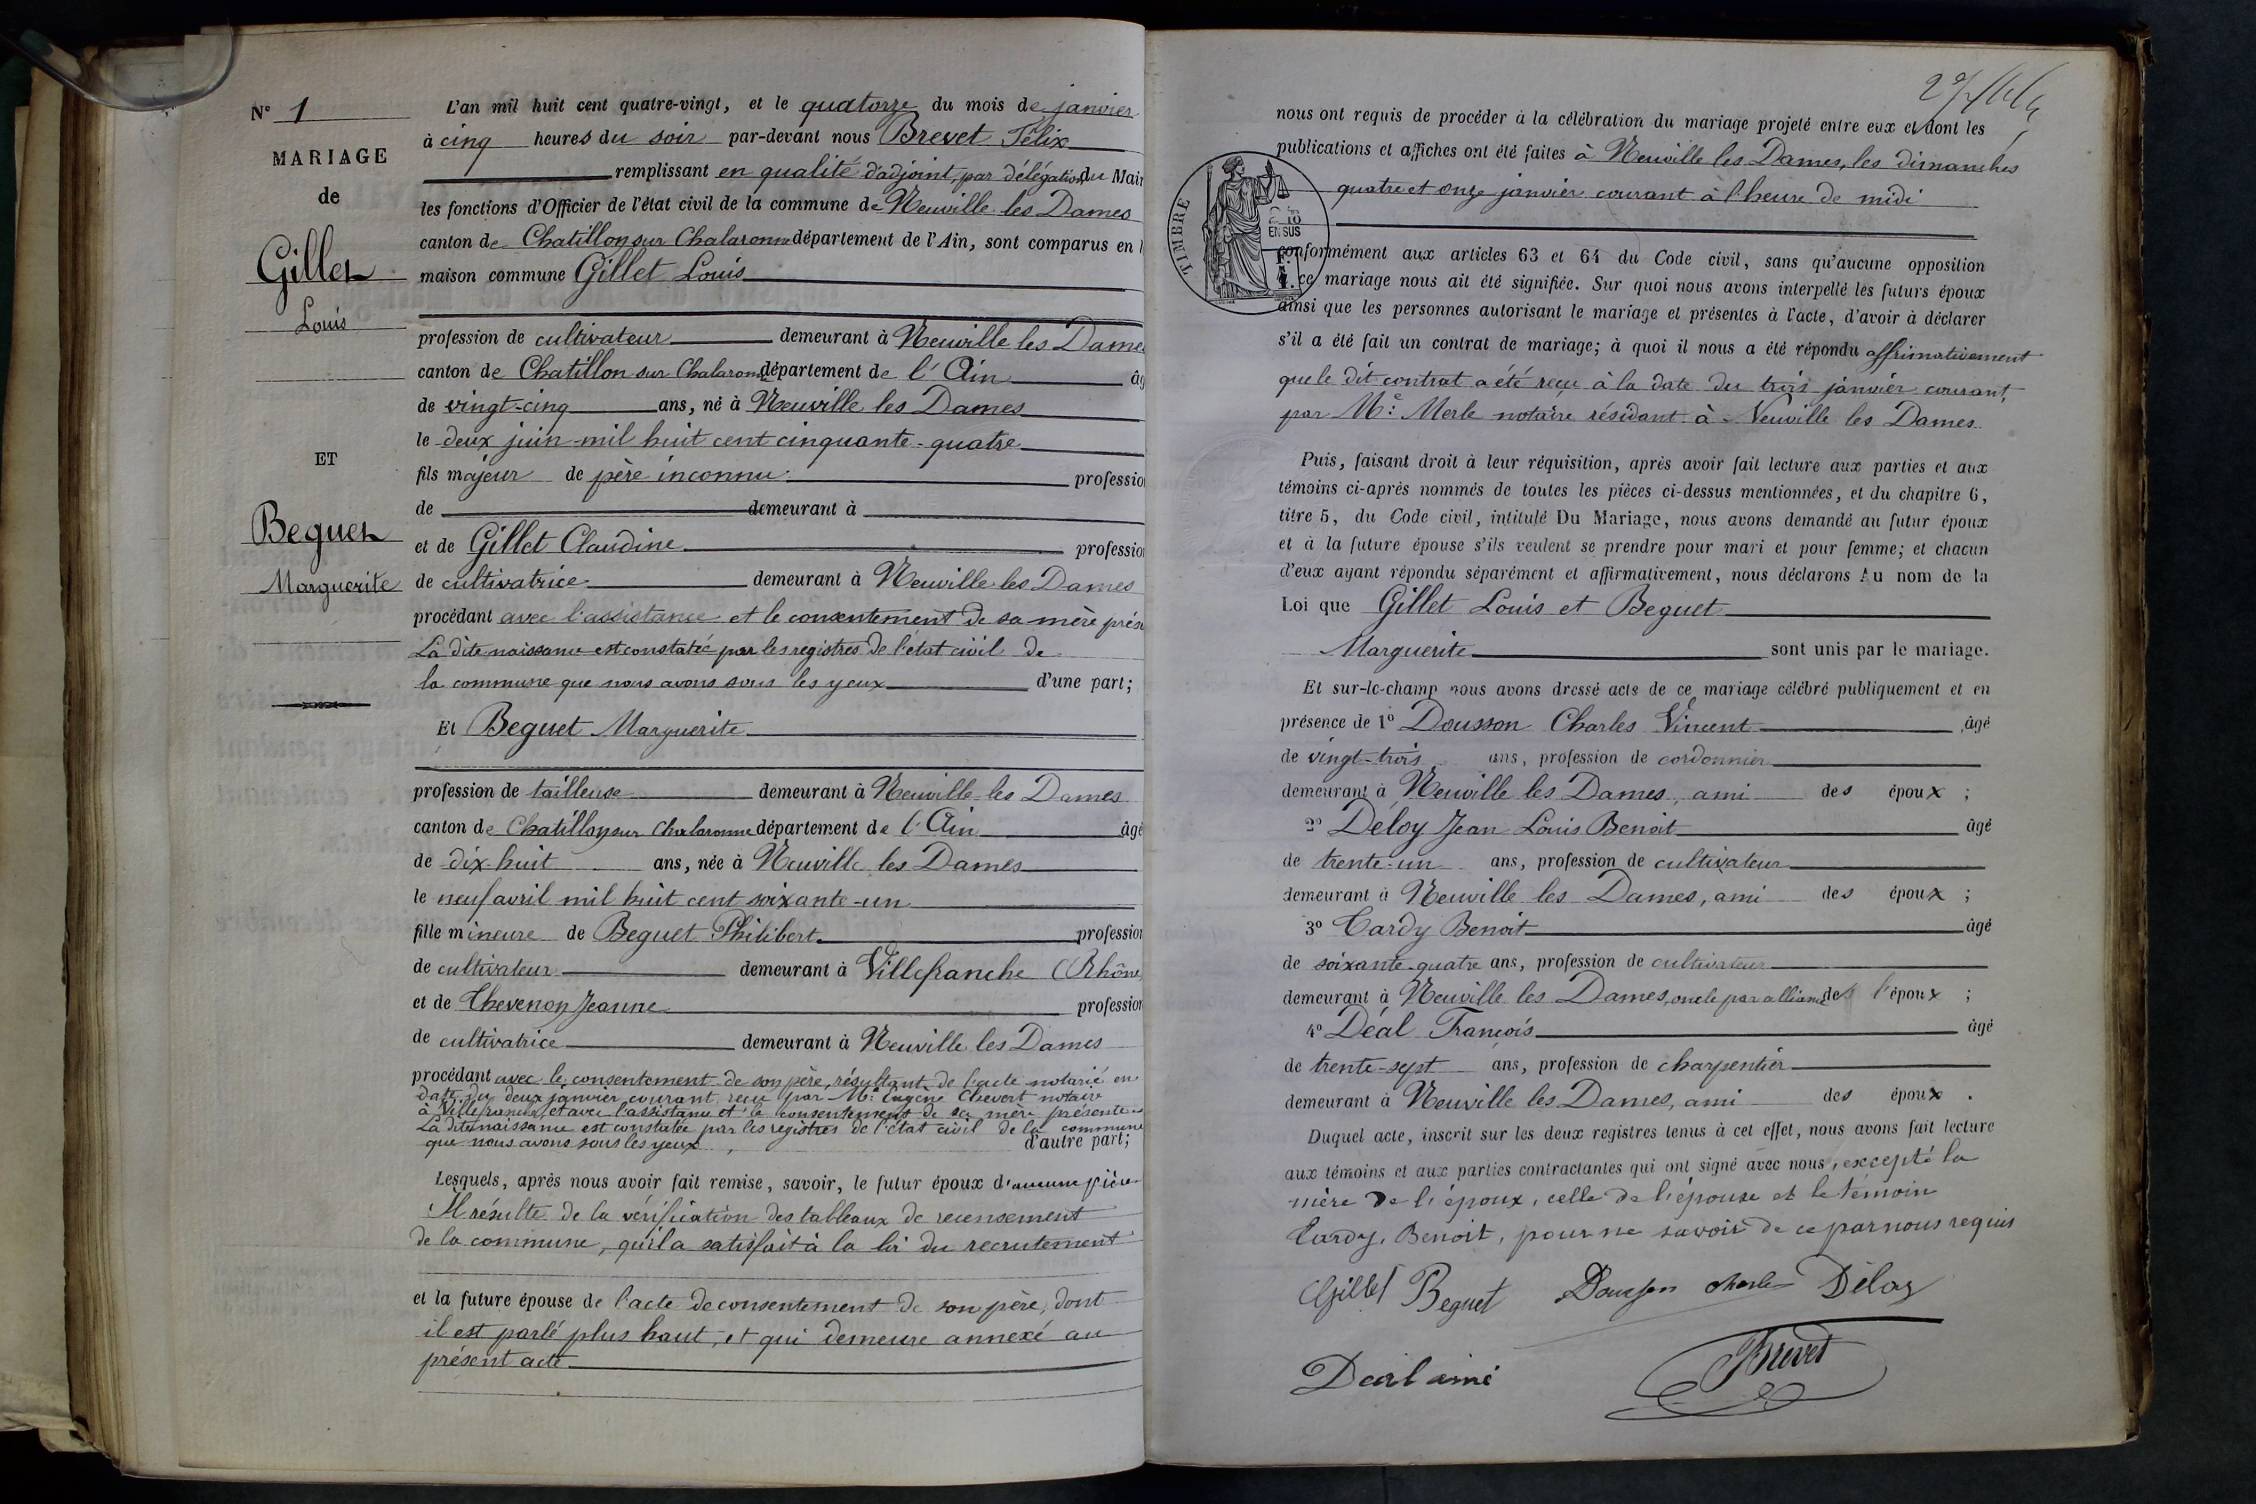 N° 1
MARIAGE
de
Gillet
Louis
ET
Beguet
Marguerite
L'an mil huit cent quatre-vingt, et le quatorze du mois de janvier
à cinq heures du soir par-devant nous Brevet Félix
remplissant en qualité d'adjoint, par délégation du Mair
les fonctions d'Officier de l'état civil de la commune de Neuville les Dames
canton de Chatillon sur Chalaronne département de l'Ain, sont comparus en l
maison commune Gillet Louis
profession de cultivateur demeurant à Neuville les Dames
canton de Chatillon sur Chalaronne département de l'Ain âg
de vingt-cinq ans, né à Neuville les Dames
le deux juin mil huit cent cinquante-quatre
fils majeur de père inconnu professio
de demeurant à
et de Gillet Claudine professio
de cultivatrice demeurant à Neuville les Dames
procédant avec l'assistance et le consentement de sa mère prése
La dite naissance est constatée par les registres de l'état civil de
la commune que nous avons sous les yeux d'une part;
Et Beguet Marguerite
profession de tailleuse demeurant à Neuville les Dames
canton de Chatillon sur Chalaronne département de l'Ain âgé
de dix huit ans, née à Neuville les Dames
le neuf avril mil huit cent soixante-un
fille mineure de Beguet Philibert profession
de cultivateur demeurant à Villefranche (Rhône
et de Thevenon Jeanne profession
de cultivatrice demeurant à Neuville les Dames
procédant avec le consentement de son père, résultant de l'acte notarié en
date du deux janvier courant reçu par Me Eugène Chevert notaire
à Villefranche, et avec l'assistance et le consentement de sa mère présente
La dite naissance est constatée par les registres de l'état civil de la commune
que nous avons sous les yeux, d'autre part;
Lesquels, après nous avoir fait remise, savoir, le futur époux d'aucune pièce
Il résulte de la vérification des tableaux de recensement
de la commune, qu'il a satisfait à la loi du recrutement
et la future épouse de l'acte de consentement de son père, dont
il est parlé plus haut, et qui demeure annexé au
présent acte
nous ont requis de procéder à la célébration du mariage projeté entre eux et dont les
publications et affiches ont été faites à Neuville les Dames, les dimanches
quatre et onze janvier courant à l'heure de midi
TIMBRE
EN SUS
conformément aux articles 63 et 64 du Code civil, sans qu'aucune opposition
à ce mariage nous ait été signifiée. Sur quoi nous avons interpellé les futurs époux
ainsi que les personnes autorisant le mariage et présentes à l'acte, d'avoir à déclarer
s'il a été fait un contrat de mariage; à quoi il nous a été répondu affirmativement
que le dit contrat a été reçu à la date du trois janvier courant,
par Me Merle notaire résidant à Neuville les Dames
Puis, faisant droit à leur réquisition, après avoir fait lecture aux parties et aux
témoins ci-après nommés de toutes les pièces ci-dessus mentionnées, et du chapitre 6,
titre 5, du Code civil, intitulé Du Mariage, nous avons demandé au futur époux
et à la future épouse s'ils veulent se prendre pour mari et pour femme; et chacun
d'eux ayant répondu séparément et affirmativement, nous déclarons Au nom de la
Loi que Gillet Louis et Beguet
Marguerite sont unis par le mariage.
Et sur-le-champ nous avons dressé acte de ce mariage célébré publiquement et en
présence de 1° Dousson Charles Vincent âgé
de vingt-trois ans, profession de cordonnier
demeurant à Neuville les Dames, ami des époux;
2° Deloy Jean Louis Benoit âgé
de trente-un ans, profession de cultivateur
demeurant à Neuville les Dames, ami des époux;
3° Tardy Benoit âgé
de soixante-quatre ans, profession de cultivateur
demeurant à Neuville les Dames, oncle par alliance de l'époux;
4° Déal François âgé
de trente-sept ans, profession de charpentier
demeurant à Neuville les Dames, ami des époux.
Duquel acte, inscrit sur les deux registres tenus à cet effet, nous avons fait lecture
aux témoins et aux parties contractantes qui ont signé avec nous, excepté la
mère de l'époux, celle de l'épouse et le témoin
Tardy, Benoit, pour ne savoir de ce par nous requis
Gillet Beguet Dousson Charles Déloy
Déal aimé Brevet